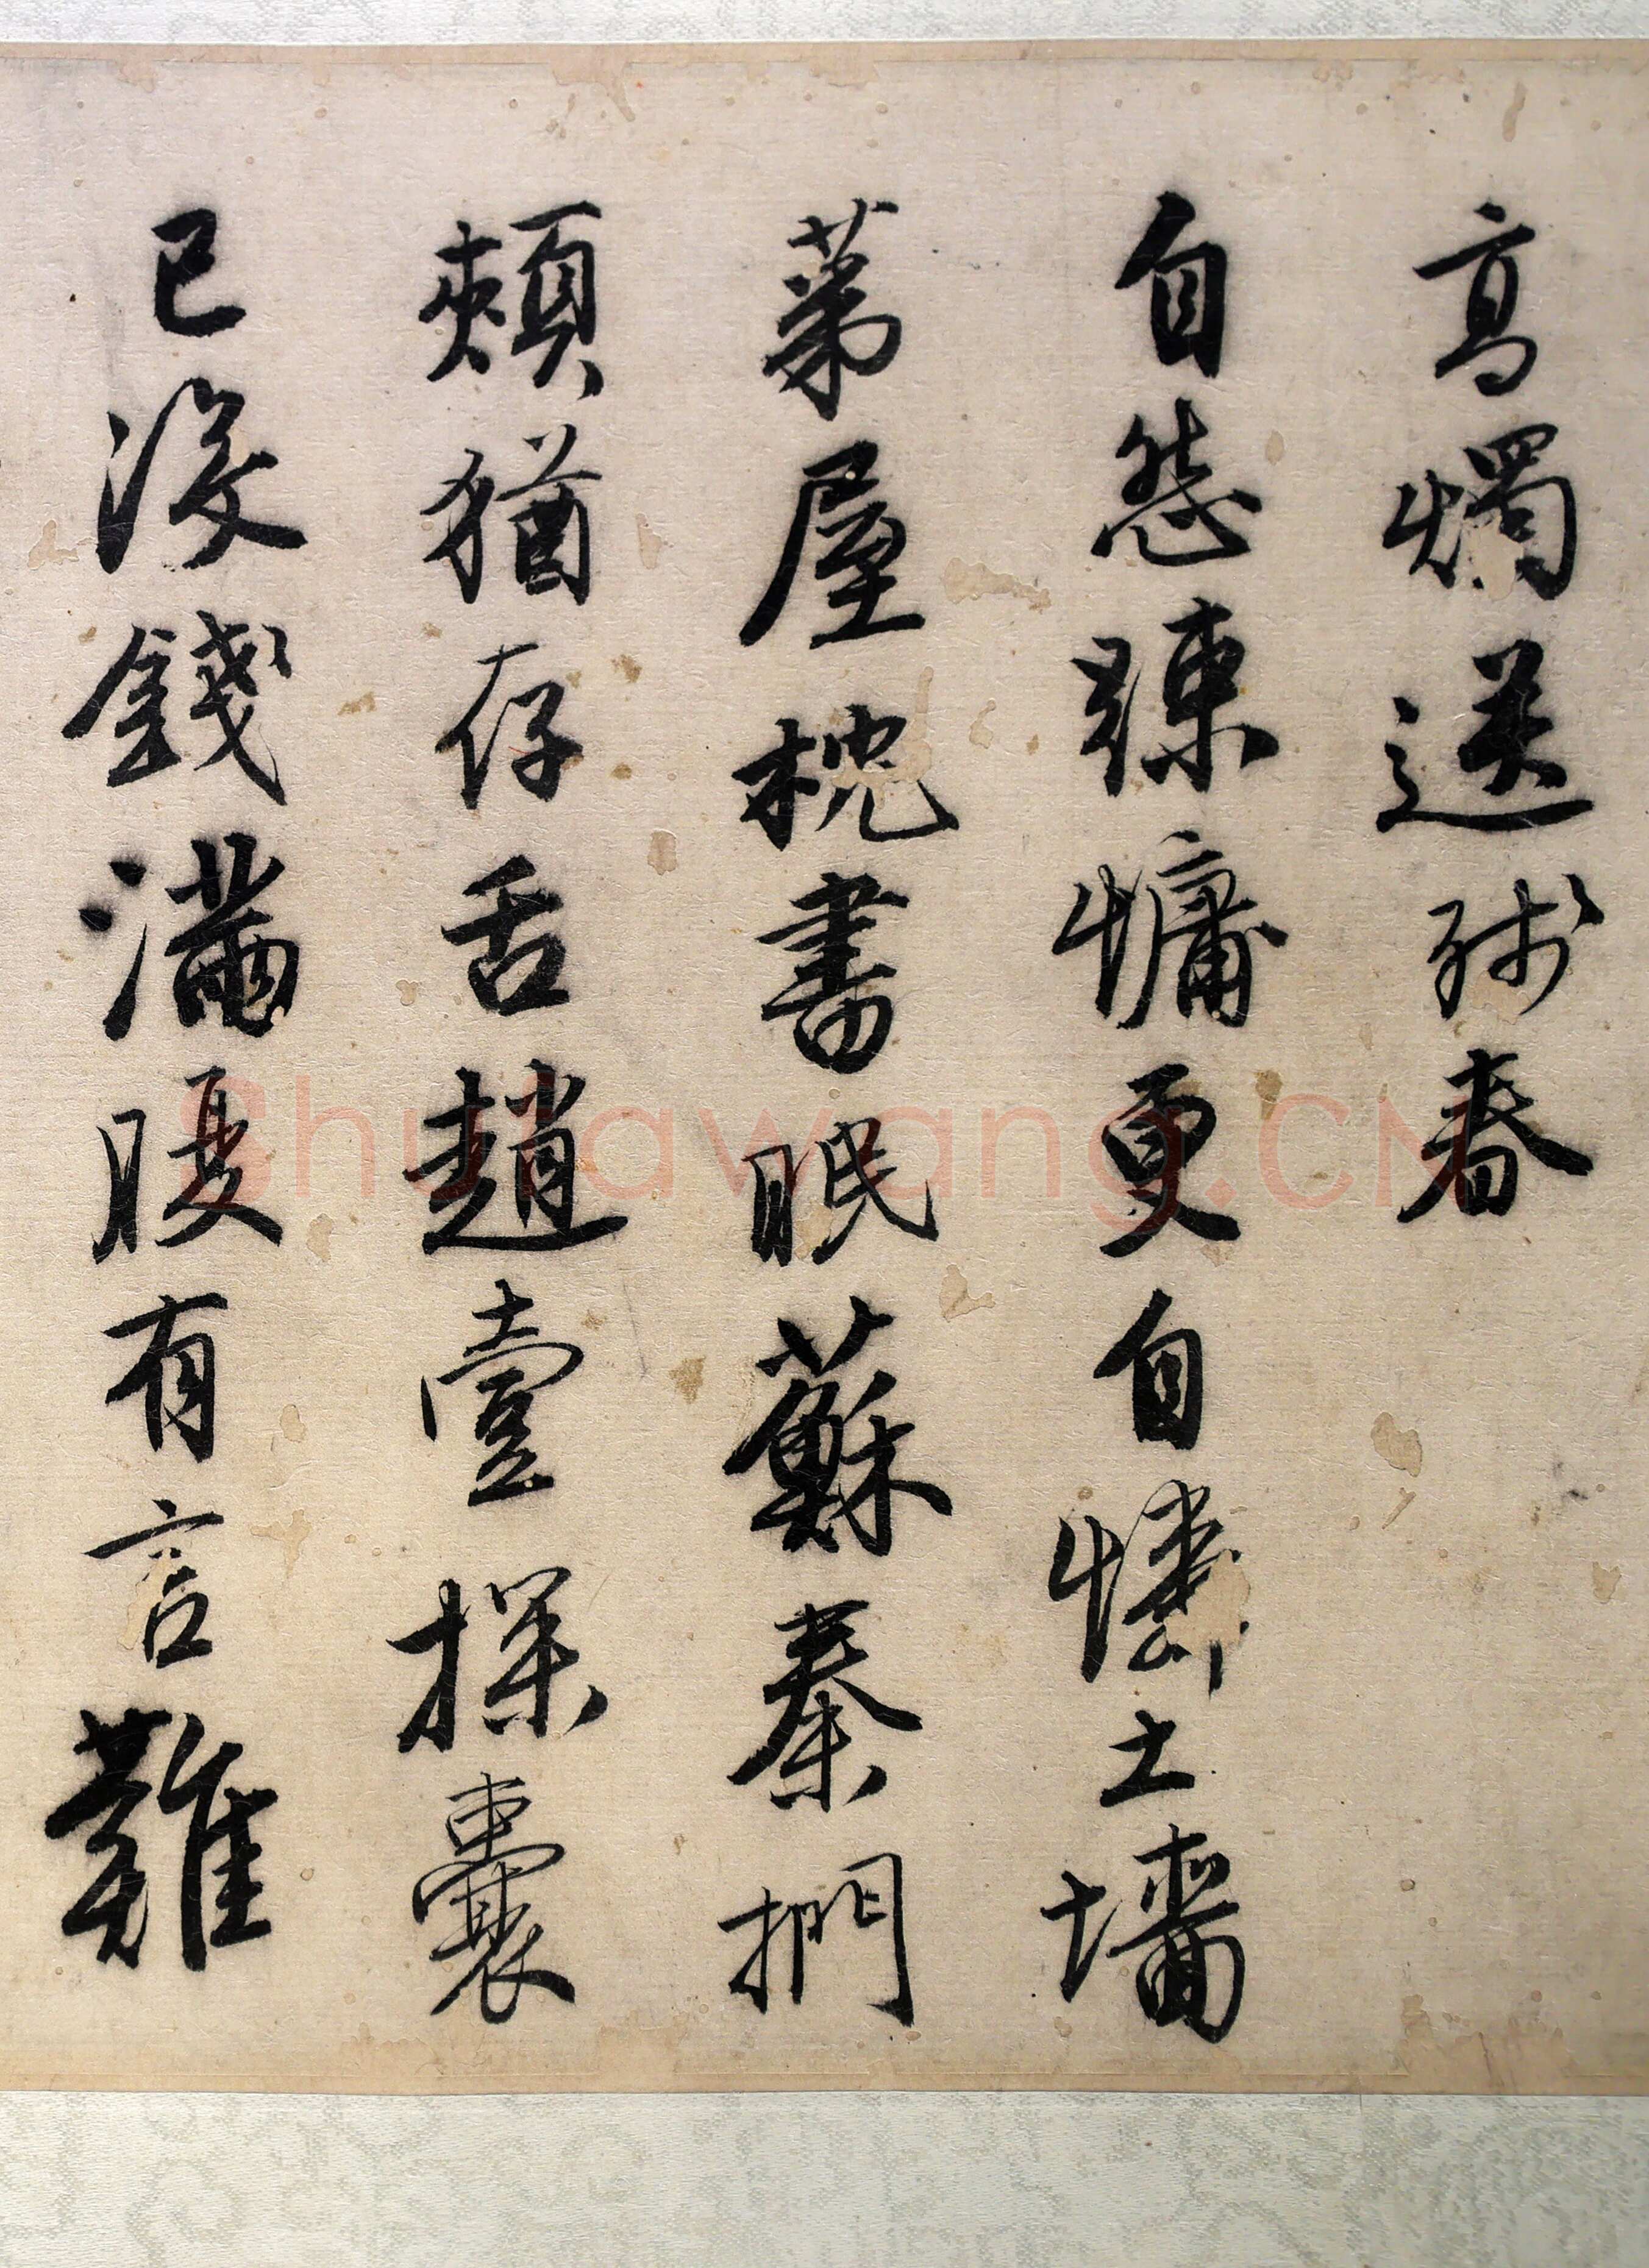 高燭送殘春
自然疎慵更自憐土墻
茅屋枕書眠蘇秦捫
頰猶存舌趙壹探囊
已沒錢滿腹有言難
Shufawang.CN